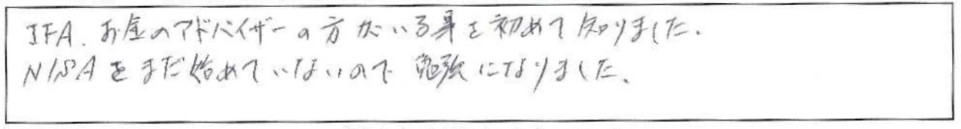 IFA、お金のアドバイザーの方がいる事を初めて知りました。
NISAをまだ始めていないので勉強になりました。